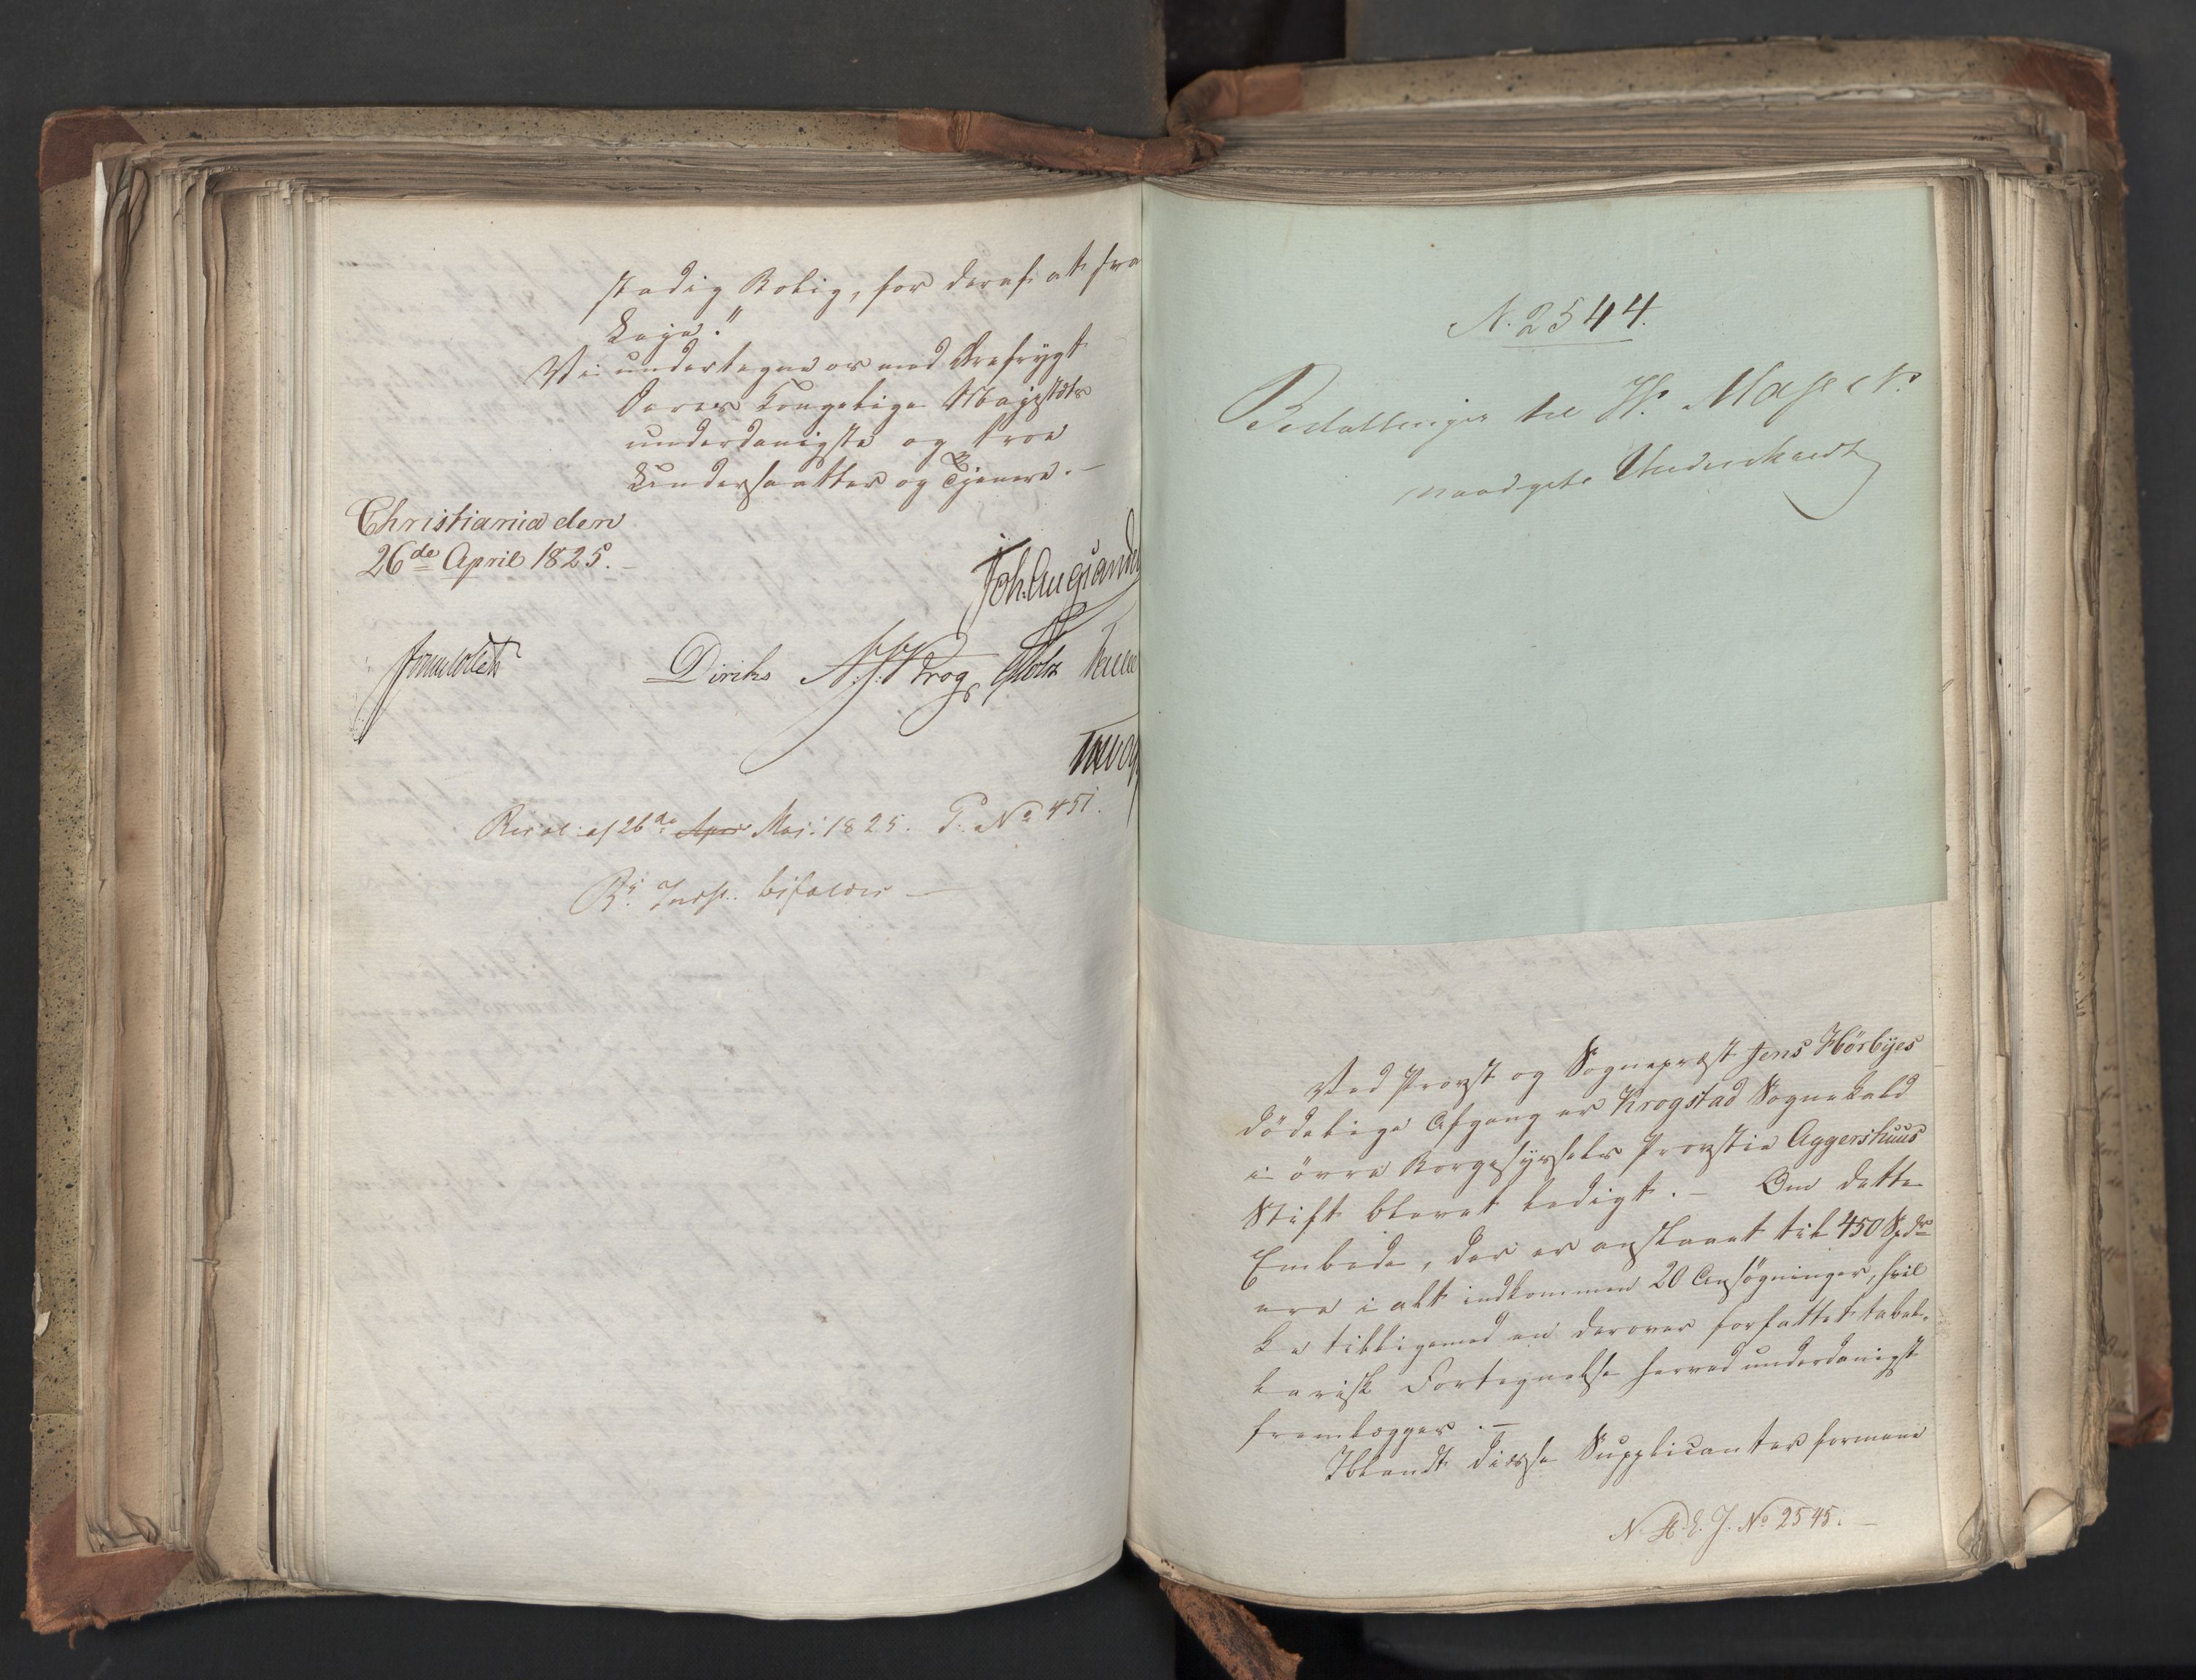 stadig Bolig, for deraf at fra
Leje."
Vi undertegne os med Ærefrygt
Deres Kongelige Majestæts
underdanigste og troe
Undersaatter og Tjenere. –
Christiania den
26de April 1825. –
Joh. Aug. Sande
Diriks
Krog
Resol. af 26de Apr Maj: 1825. P. No 451.
Rs Indst. bifaldes —
N. 2544.
Bestallinger til H.
Ved Provst og Sognepræst Jens Hörbyes
dödelige Afgang er Krogstad Sognekald
i övre Borgesyssels Provstie Aggershuus
Stift blevet ledigt. – Om dette
Embede, der er anslaaet til 450 Spdr
ere i alt indkommen 20 Ansögninger, hvil
ke tilligemed en derover forfattet tabel-
larisk Fortegnelse herved underdanigst
fremlægges. –
Iblandt disse Supplicanter formene
N. A. E. J. No 2545. –